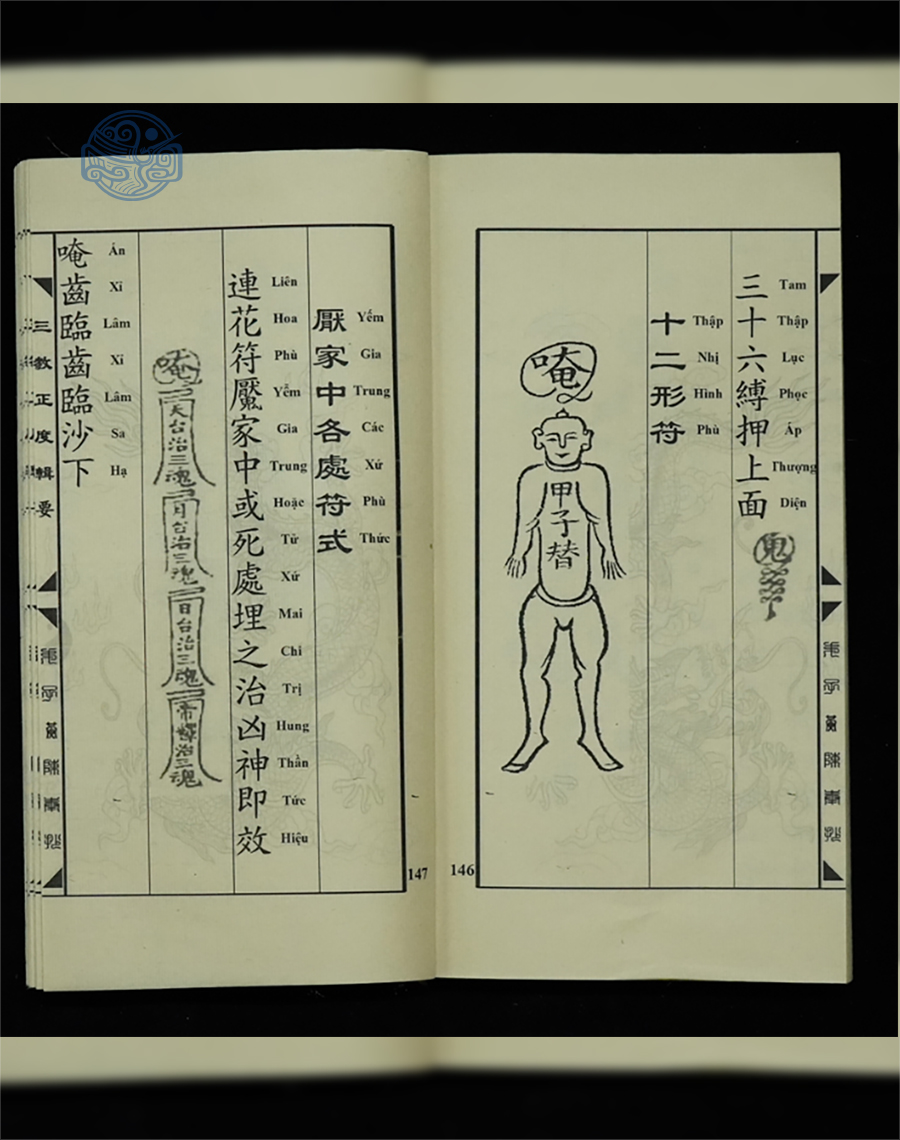 三十六縛押上面
Tam Thập Lục Phọc Áp Thượng Diện
鬼
十二形符
Thập Nhị Hình Phù
唵
甲子替
146
厭家中各處符式
Yếm Gia Trung Các Xứ Phù Thức
連花符魘家中或死處埋之治凶神即效
Liên Hoa Phù Yểm Gia Trung Hoặc Tử Xứ Mai Chi Trị Hung Thần Tức Hiệu
唵
天台治三魂
月台治三魂
日台治三魂
帝釋治三魂
唵齒臨齒臨沙下
Án Xỉ Lâm Xỉ Lâm Sa Hạ
三教正度輯要
147